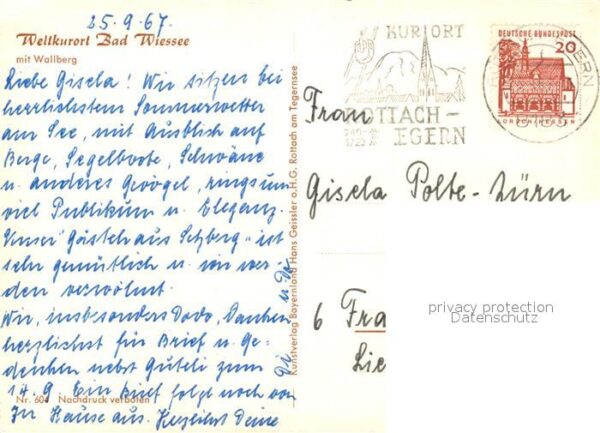 25.9.67.
Weltkurort Bad Wiessee
mit Wallberg
Liebe Gisela! Wir sitzen bei
herrlichstem Sommerwetter
am See, mit Ausblick auf
Berge, Segelboote, Schwäne
u. anderes Gevögel, ringsum
viel Publikum u. Eleganz.
Unser "Gästeh aus Setzberg" ist
sehr gemütlich u. wir wer-
den verwöhnt.
Wir, insbesonders Dodo, danken
herzlichst für Brief u. Ge-
denken nebst Guteli zum
14.9. Ein Brief folgt noch von
zu Hause aus. Herzlichst Deine
Di u. Do
Nr. 604 Nachdruck verboten
Kunstverlag Bayernland Hans Geissler o.H.G. Rottach am Tegernsee
KURORT
ROTTACH-
EGERN
DEUTSCHE BUNDESPOST
20
LORSCH/HESSEN
Frau
Gisela Polte-Zürn
6 Fra
Lie
privacy protection
Datenschutz